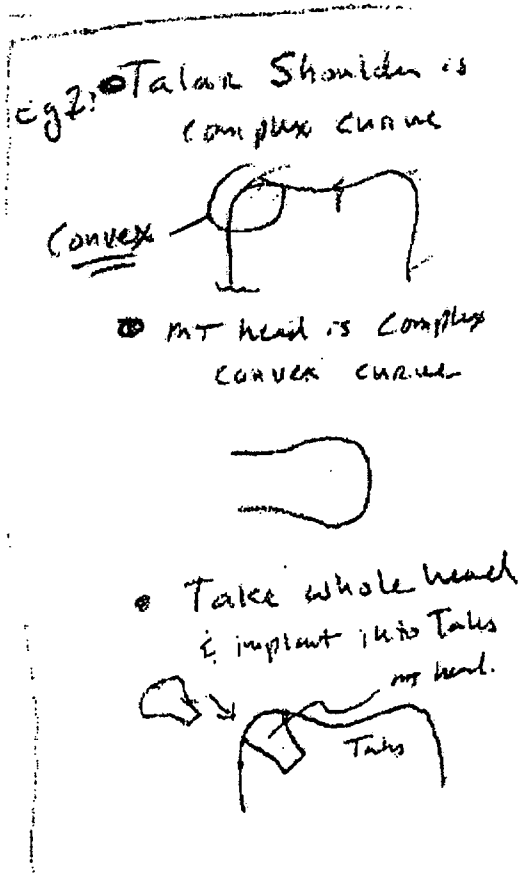 Eg 2: Talar Shoulder is
complex curve
Convex
MT head is complex
convex curve
Take whole head
& implant into Talus
MT head.
Talus